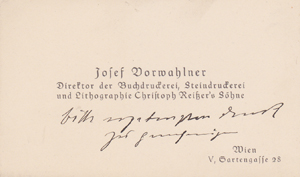 Josef Vorwahlner
Direktor der Buchdruckerei, Steindruckerei
und Lithographie Christoph Reißer's Söhne
bittet
Wien
V, Gartengasse 28